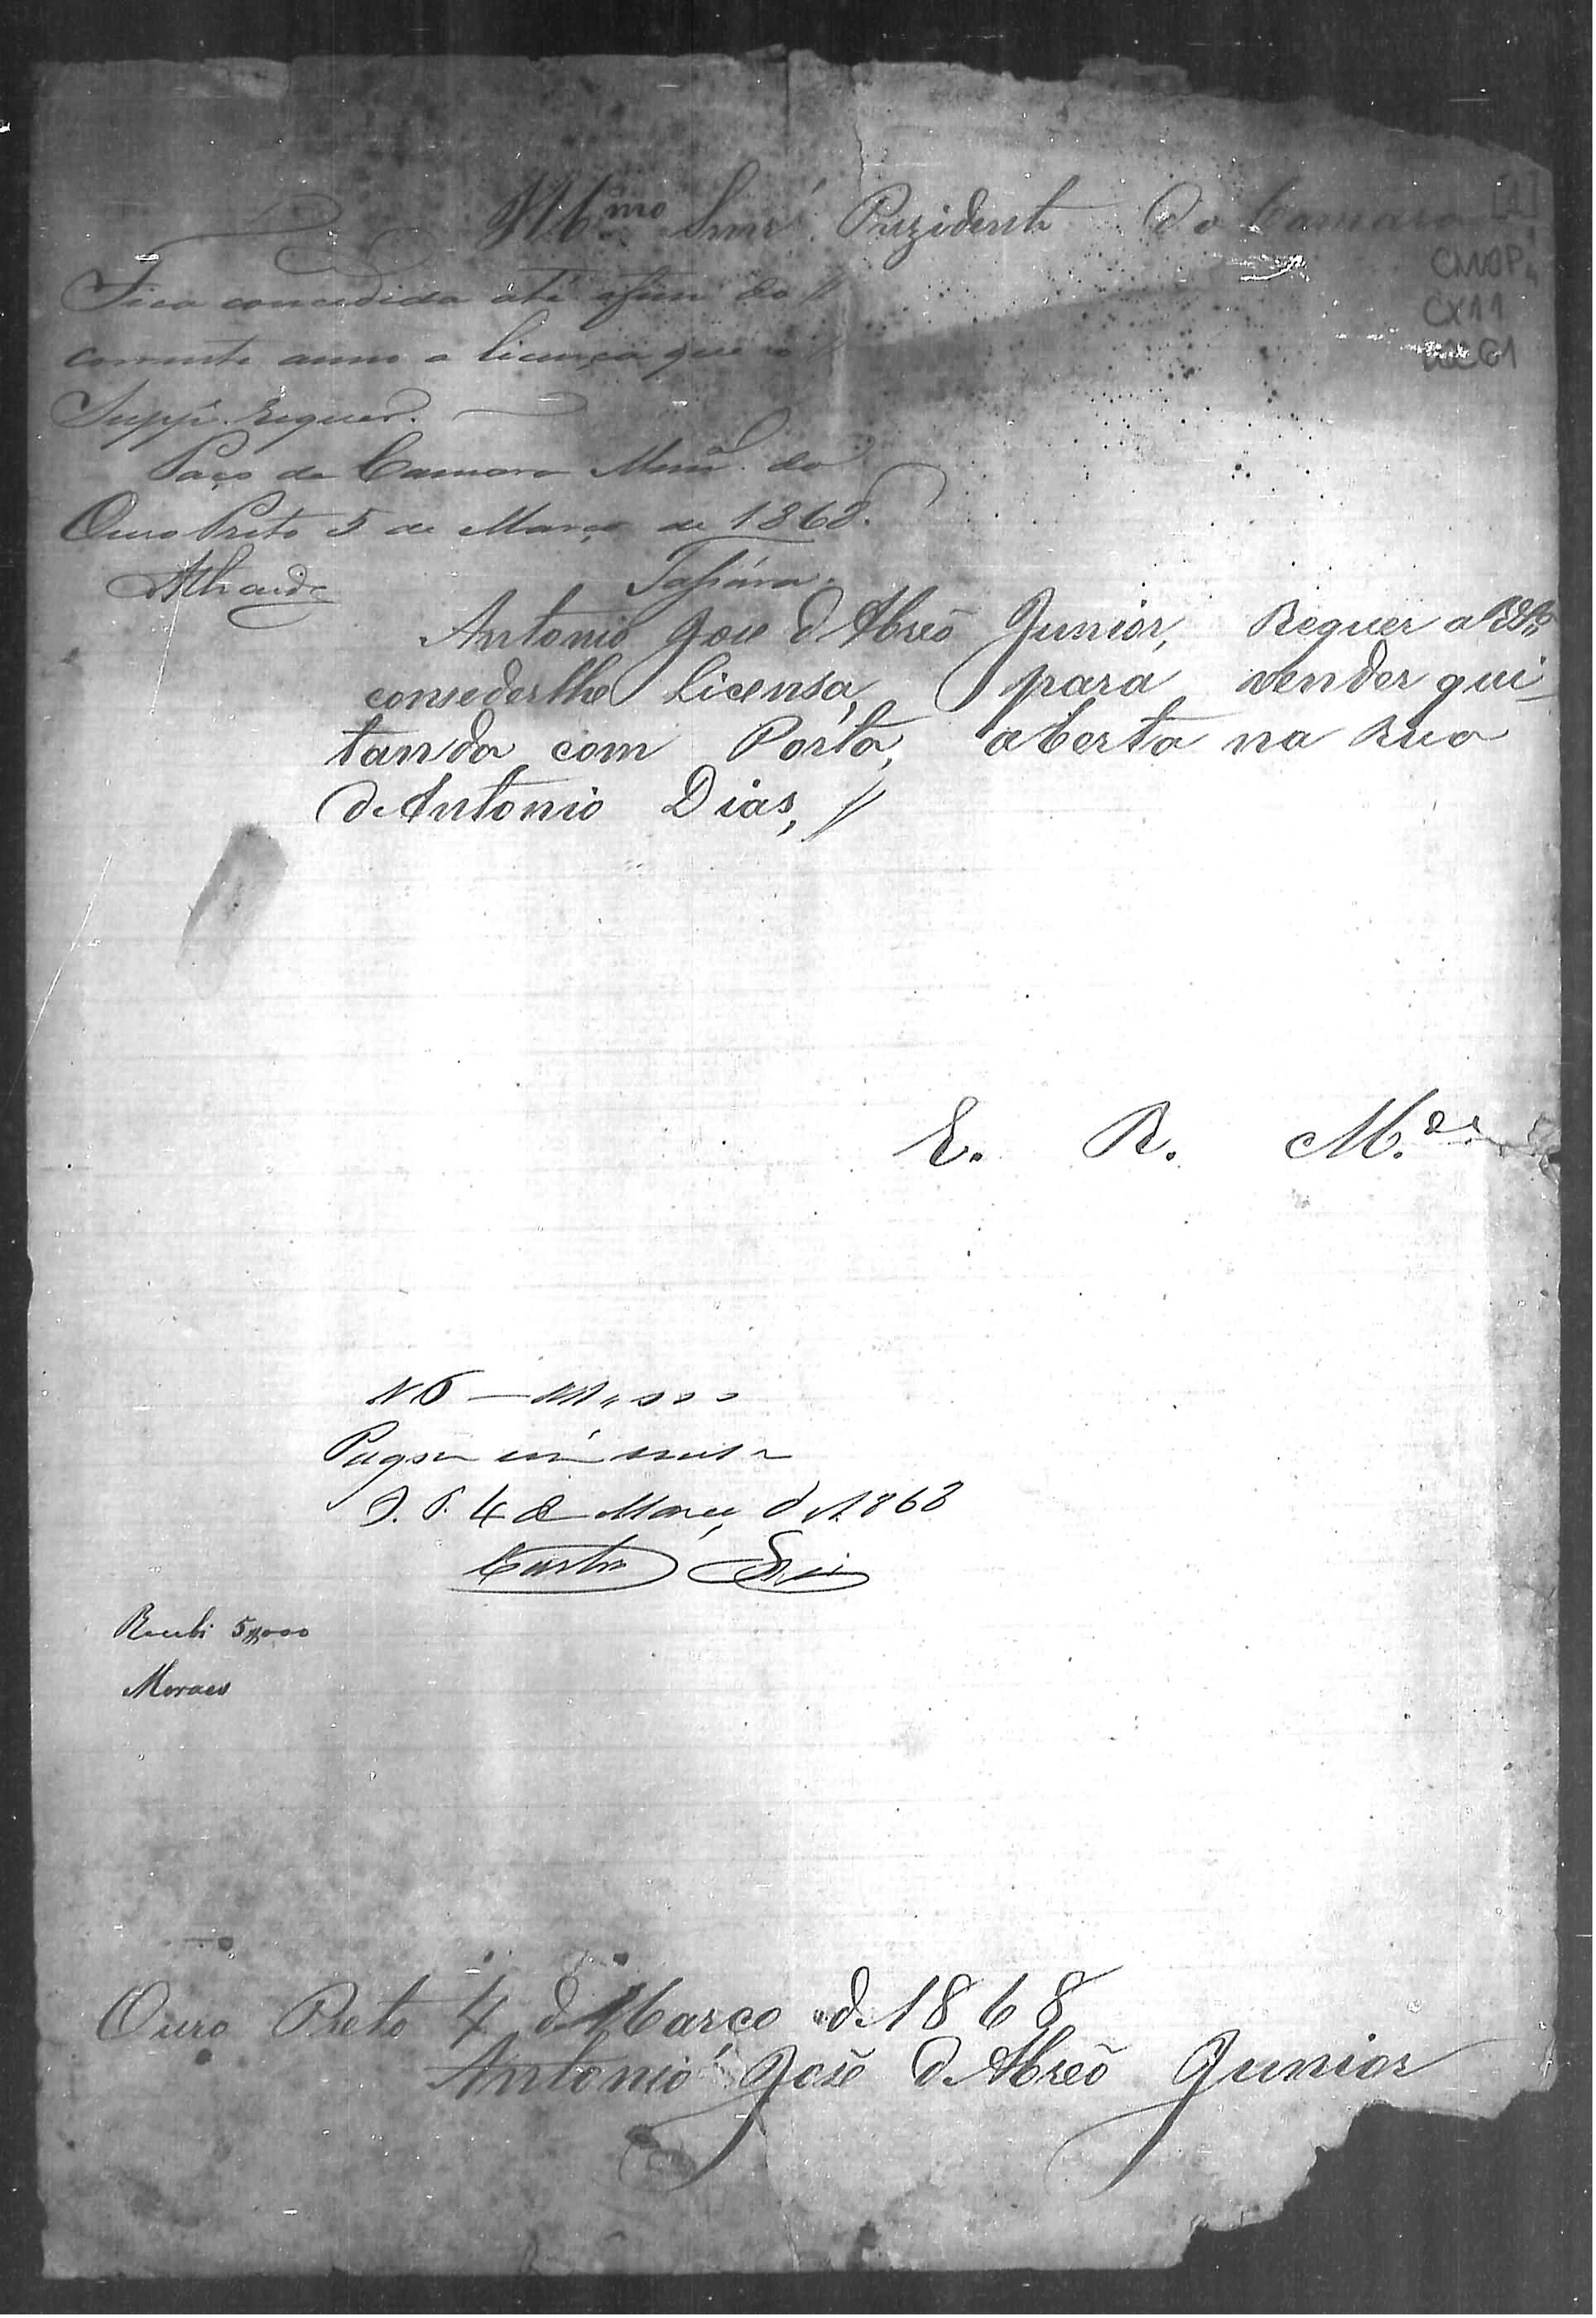 Ill.mo Snr. Prezidente da Camara
[1]
CMOP
CX11
Fica concedida até o fim do
corrente anno a licença que o
Supp.e requer.
Paço da Camara Mun. do
Ouro Preto 5 de Março de 1868.
Antonio Jose d'Abreo Junior, Requer a
consederlhe licensa, para vender qui
tanda com Porta, aberta na Rua
de Antonio Dias, //
E. R. M.ce
N 6
Pagou
O. P. 4 de Março d 1868
Castro
Recebi 5$000
Moraes
Ouro Preto 4 d. Março d. 1868
Antonio José d. Abreo Junior